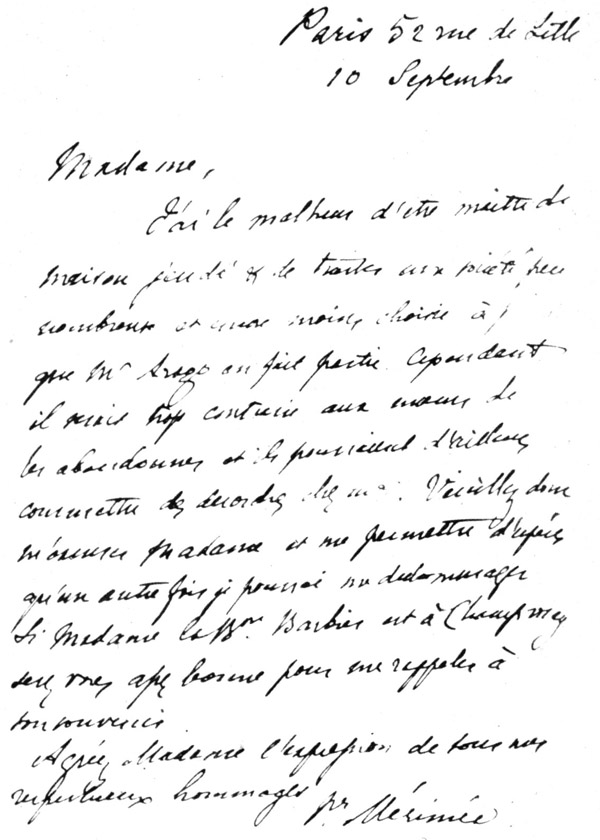 Paris 52 rue de Lille
10 Septembre
Madame,
J'ai le malheur d'etre maitre de
maison jeudi & de traiter une société peu
nombreuse et encore moins choisie
que Mr Arago en fait partie. Cependant
il serait trop contraire aux mœurs de
les abandonner et ils pourraient d'ailleurs
commettre des desordres chez moi. Veuillez donc
m'excuser Madame et me permettre d'espérer
qu'un autre fois je pourrai me dedommager
Si Madame la Bnne Barbier est à Champrosay
serez vous assez bonne pour me rappeler à
son souvenir
Agréez Madame l'expression de tous mes
respectueux hommages
Pr Mérimée